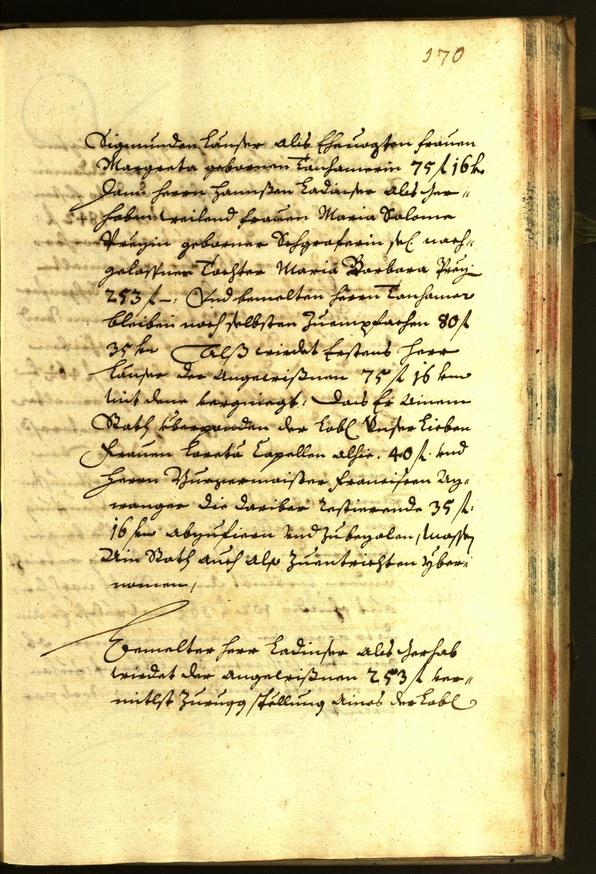 170
Sigmunden Lanser als Ehevogten frauen
Margreta gebornen Tanhamerin 75 f 16 k.
Dann herrn Hannsßen Ladinser als Ger-
haben weilend frauen Maria Salome
Preyin geborner Schgraferin sel. nach-
gelassner Tochter Maria Barbara Prey
253 f —: Und bemelten herrn Tanhamer
bleiben noch selbsten zuempfachen 80 f
35 kr Alß wirdet Erstens herr
Lanser der angewißnen 75 f 16 kr
mit deme vergniegt: Das Er ainem
Rath überponden der Lobl Unser Lieben
frauen Loreta Capellen alhie. 40 f. und
herrn Burgermaister francißen An-
wanger die dariber restierende 35 f:
16 kr abzufiern und zubezalen, massen
Ain Rath auch also zuentrichten yber-
nomen,
Bemelter herr Ladinser als Gerhab
wirdet der angewißnen 253 f ver-
mitlst zurugg stellung aines der Lobl